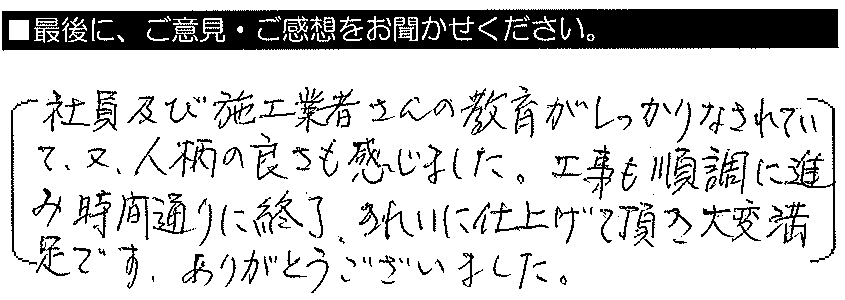 ■最後に、ご意見・ご感想をお聞かせください。
社員及び施工業者さんの教育がしっかりなされてい
て、又、人柄の良さも感じました。工事も順調に進
み時間通りに終了、きれいに仕上げて頂き大変満
足です。ありがとうございました。